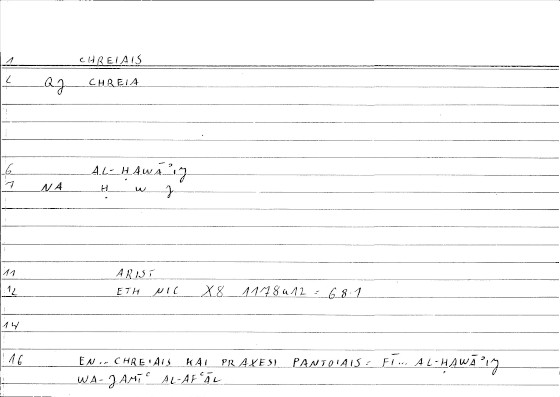 1 CHREIAIS
2 QJ CHREIA
6 AL-ḤAWĀʾIJ
7 NA Ḥ W J
11 ARIST
12 ETH NIC X8 1178a12 = 68.1
14
16 EN.. CHREIAIS KAI PRAXESI PANTOIAIS = FĪ... AL-ḤAWĀʾIJ
WA-JAMĪʿ AL-AFʿĀL